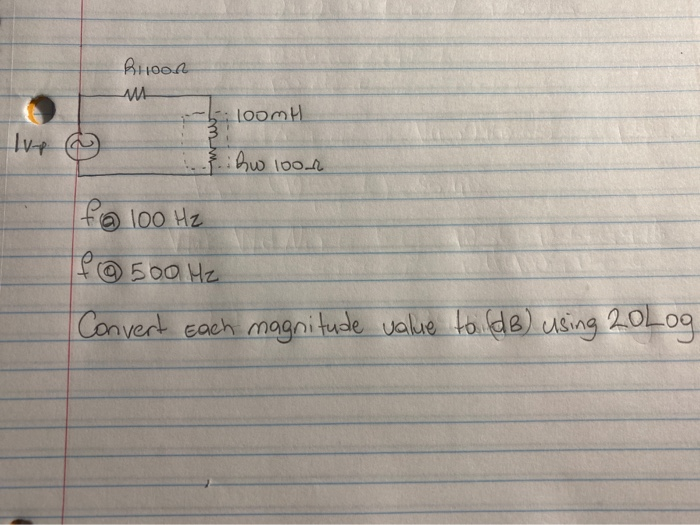 R1 100Ω
100mH
1Vp
Rw 100Ω
f@ 100 Hz
f@ 500 Hz
Convert Each magnitude value to (dB) using 20Log